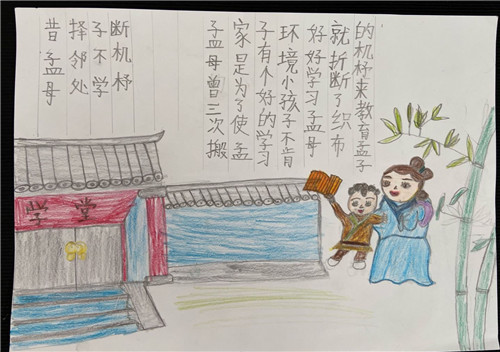 昔孟母
择邻处
子不学
断机杼
孟母曾三次搬
家是为了使孟
子有个好的学习
环境小孩子不肯
好好学习孟母
就折断了织布
的机杼来教育孟子
学堂